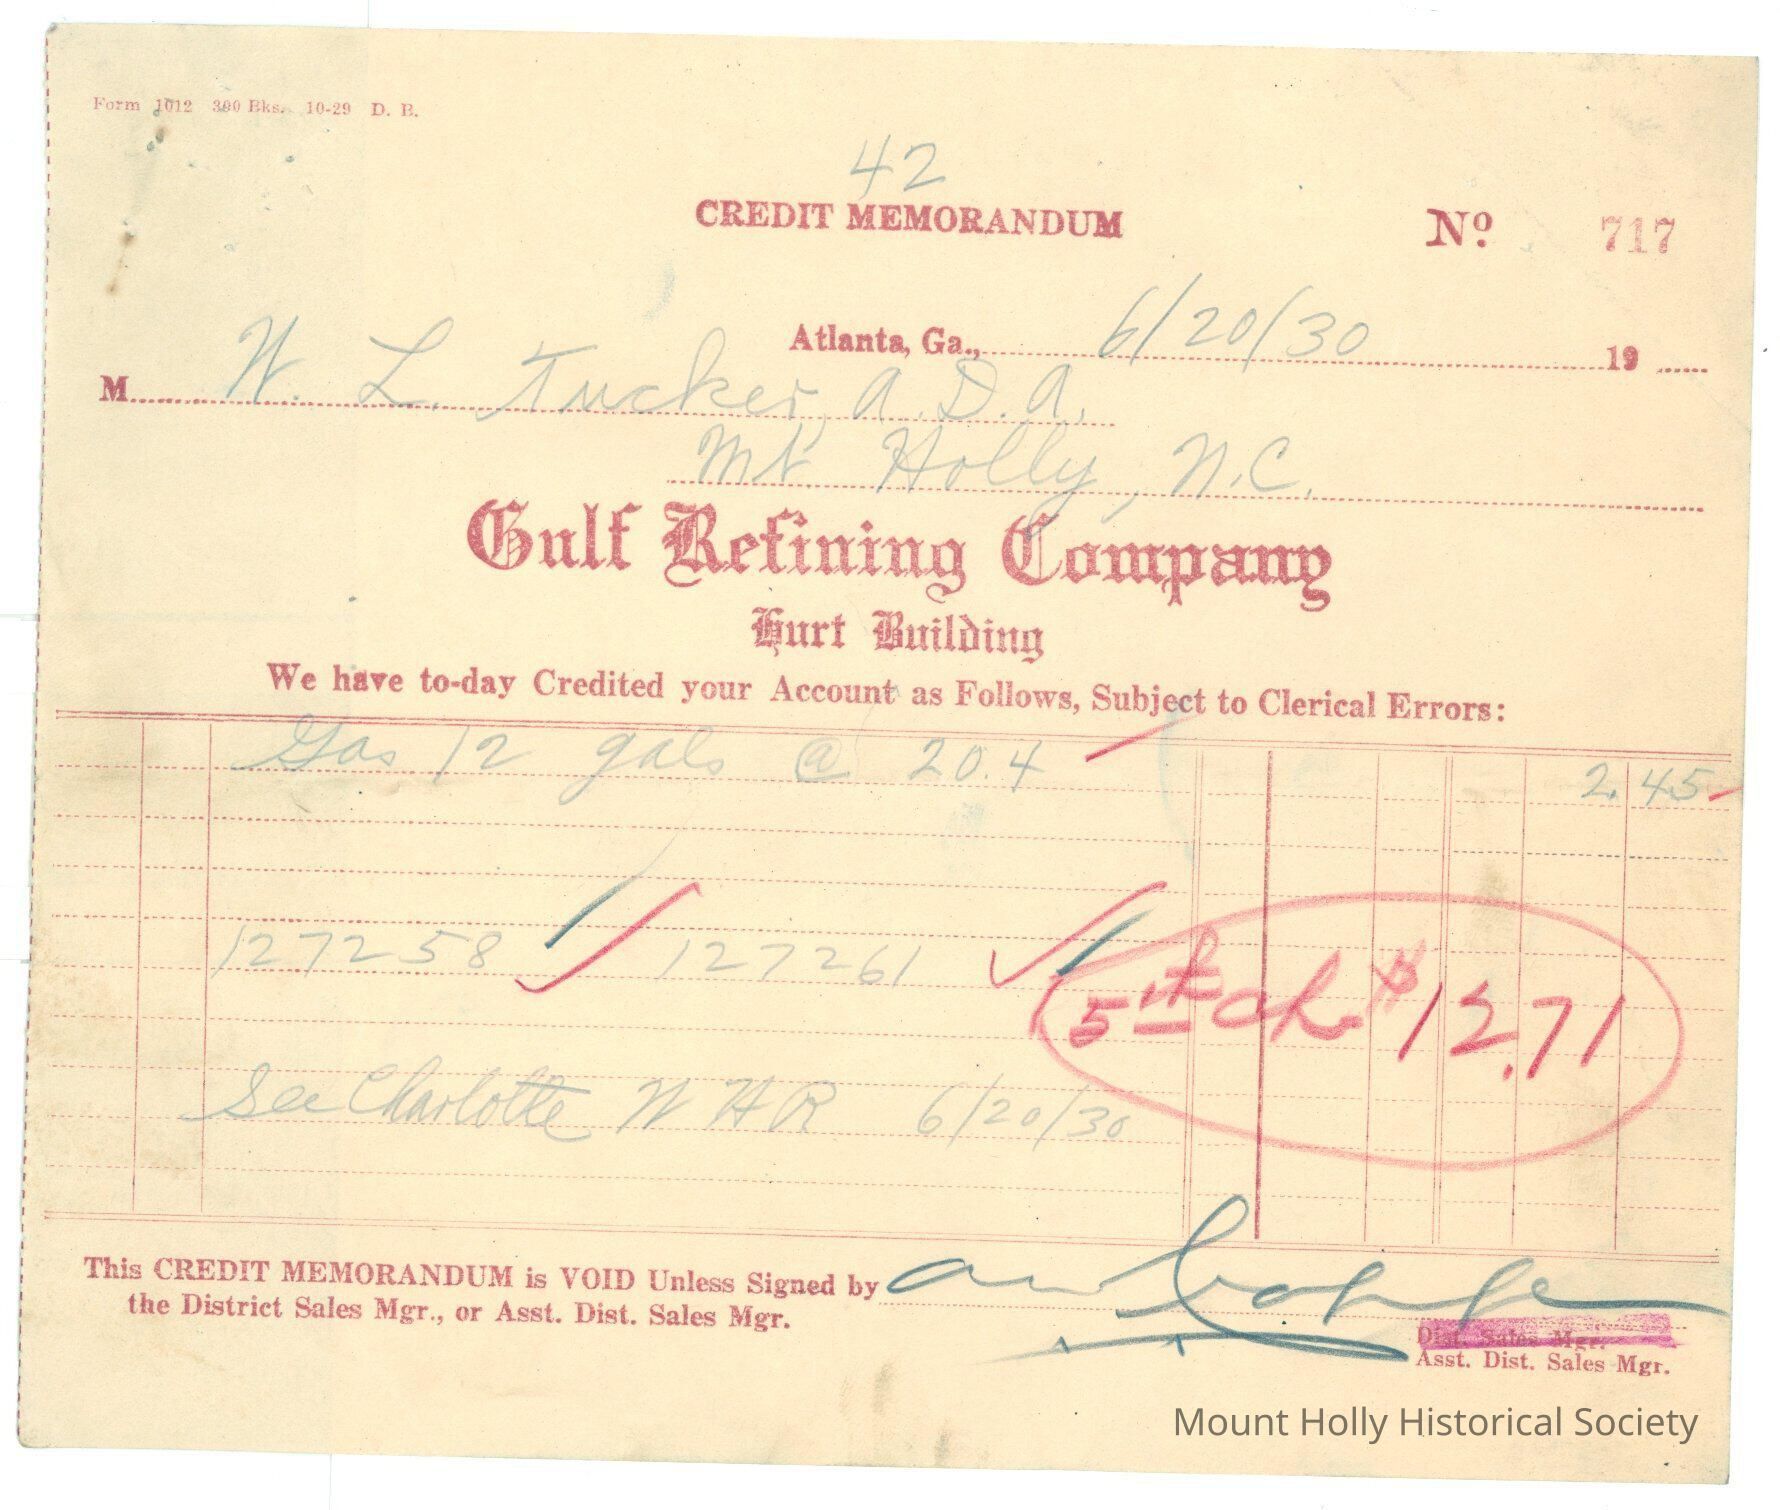 Form 1012 300 Bks. 10-29 D. B.
42
CREDIT MEMORANDUM
No. 717
Atlanta, Ga., 6/20/30 19
M W. L. Tucker, A.D.A.
Mt. Holly, N.C.
Gulf Refining Company
Hurt Building
We have to-day Credited your Account as Follows, Subject to Clerical Errors:
Gas 12 gals @ 20.4 2.45
127258 127261
5th ch $12.71
See Charlotte W H R 6/20/30
This CREDIT MEMORANDUM is VOID Unless Signed by
the District Sales Mgr., or Asst. Dist. Sales Mgr.
Dist. Sales Mgr.
Asst. Dist. Sales Mgr.
Mount Holly Historical Society